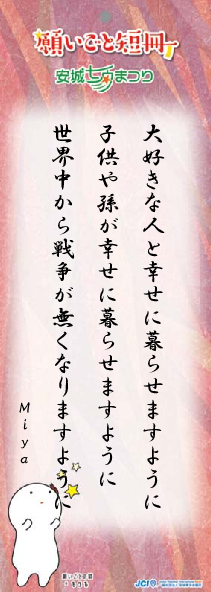 願いごと短冊
安城七夕まつり
大好きな人と幸せに暮らせますように
子供や孫が幸せに暮らせますように
世界中から戦争が無くなりますように
Miya
願いごと短冊
JCI